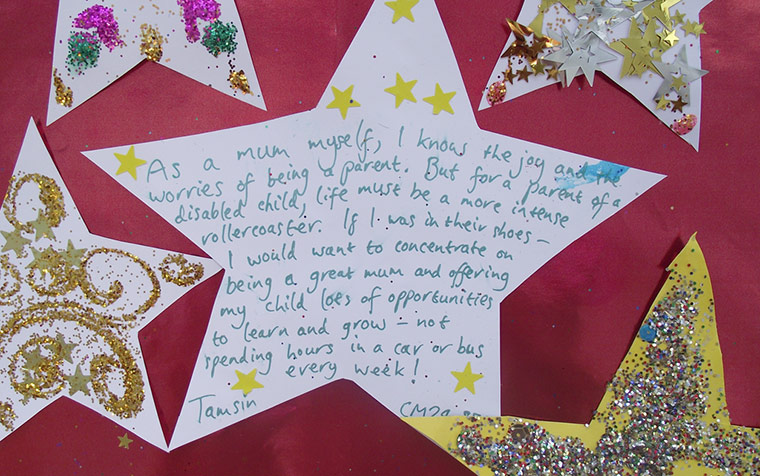 As a mum myself, I know the joy and the
worries of being a parent. But for a parent of a
disabled child, life must be a more intense
rollercoaster. If I was in their shoes –
I would want to concentrate on
being a great mum and offering
my child lots of opportunities
to learn and grow – not
spending hours in a car or bus
every week!
Tamsin